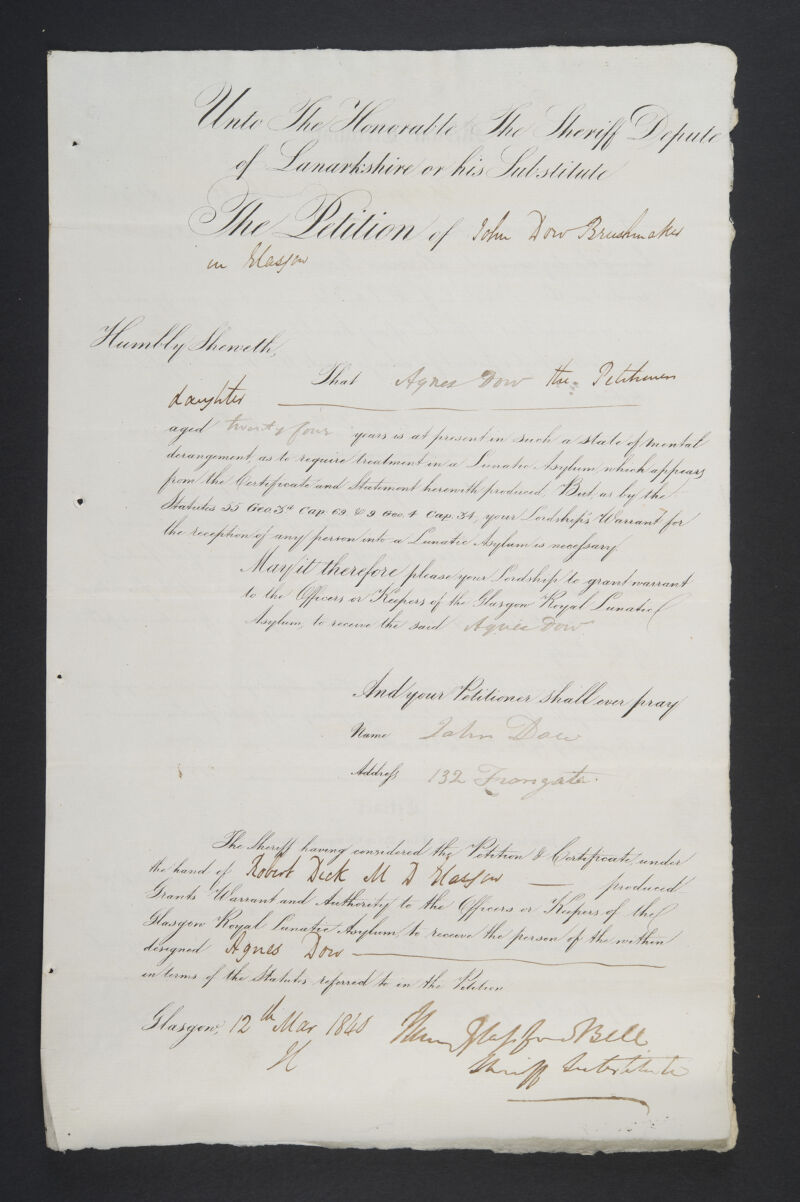 Unto The Honorable The Sheriff Depute
of Lanarkshire or his Substitute
The Petition of John Dow Brushmaker
in Glasgow
Humbly Sheweth,
That Agnes Dow the Petitioners
daughter
aged twenty four years is at present in such a state of mental
derangement, as to require treatment in a Lunatic Asylum, which appears
from the Certificate and Statement herewith produced. But, as by the
Statutes 55 Geo. 3d Cap. 69 & 9 Geo. 4 Cap. 34, your Lordship's Warrant for
the reception of any person into a Lunatic Asylum is necessary.
May it therefore please your Lordship to grant warrant
to the Officers or Keepers of the Glasgow Royal Lunatic
Asylum, to receive the said Agnes Dow
And your Petitioner shall ever pray
Name John Dow
Address 132 Trongate.
The Sheriff having considered the Petition & Certificate, under
the hand of Robert Dick M D Glasgow produced
Grants Warrant and Authority to the Officers or Keepers of the
Glasgow Royal Lunatic Asylum, to receive the person of the within
designed Agnes Dow
in terms of the Statutes referred to in the Petition
Glasgow, 12th Mar 1840 Henry Glassford Bell
Sheriff Substitute